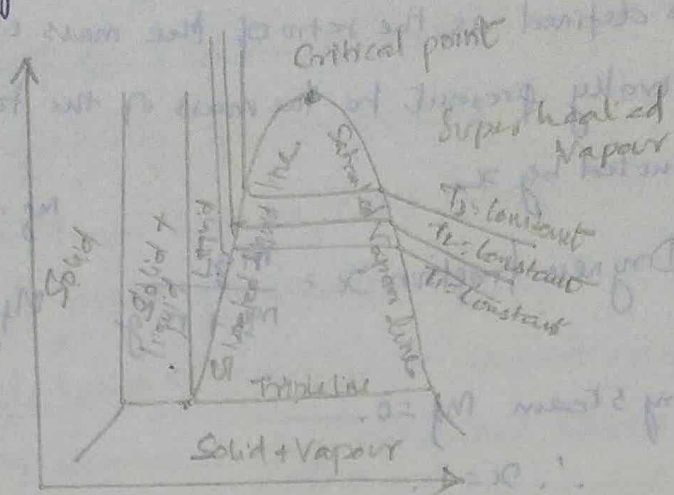 Critical point
Superheated
Vapour
Solid
Solid +
Liquid
Liquid
Saturated liquid line
Saturated Vapour line
T3 = Constant
T2 = Constant
T1 = Constant
Triple line
Solid + Vapour